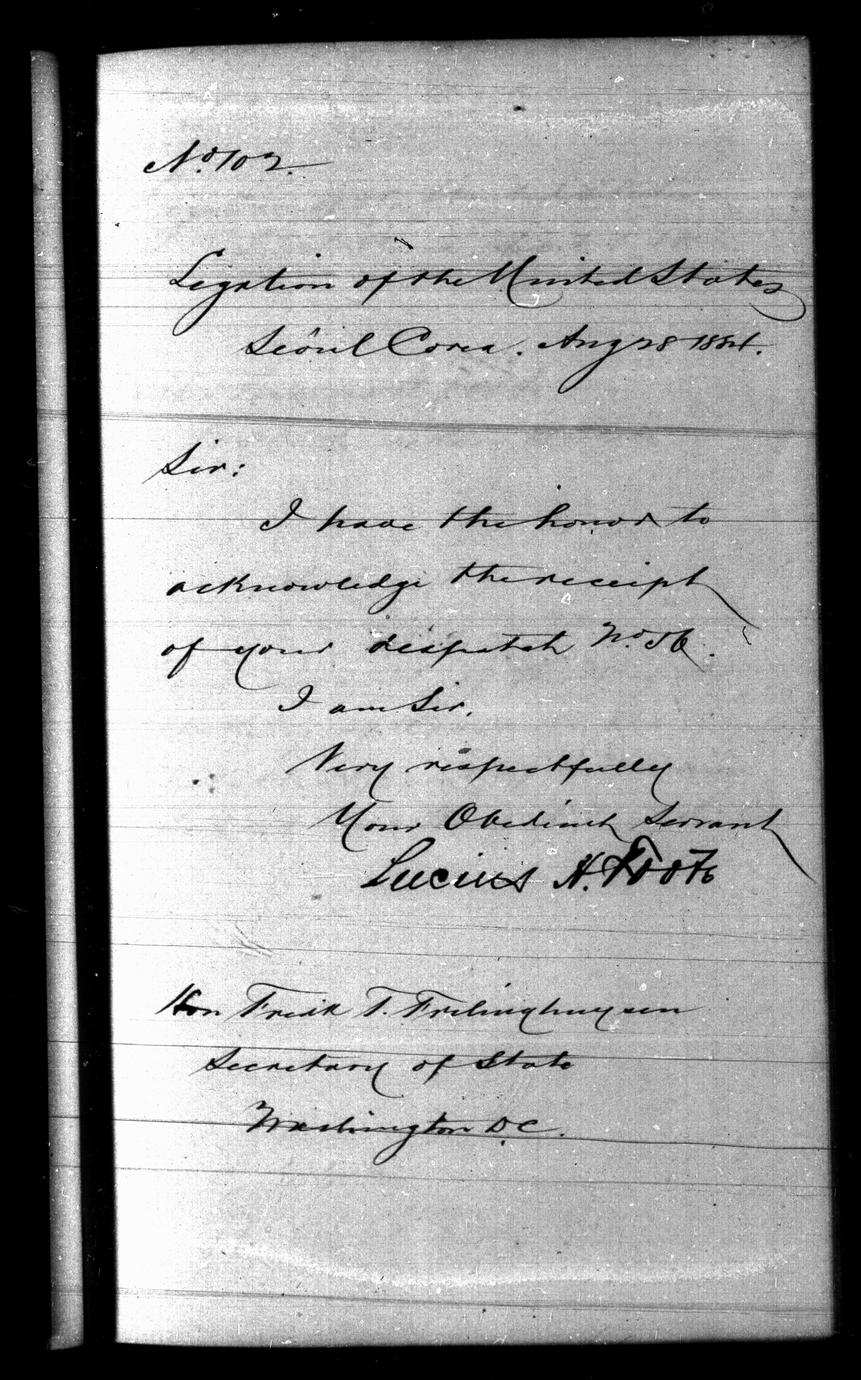 No. 102.
Legation of the United States
Seoul Corea. Aug 28 1884.
Sir:
I have the honor to
acknowledge the receipt
of your despatch No. 56.
I am Sir,
Very respectfully
Your Obedient Servant
Lucius H. Foote
Hon Fredk T. Frelinghuysen
Secretary of State
Washington D.C.